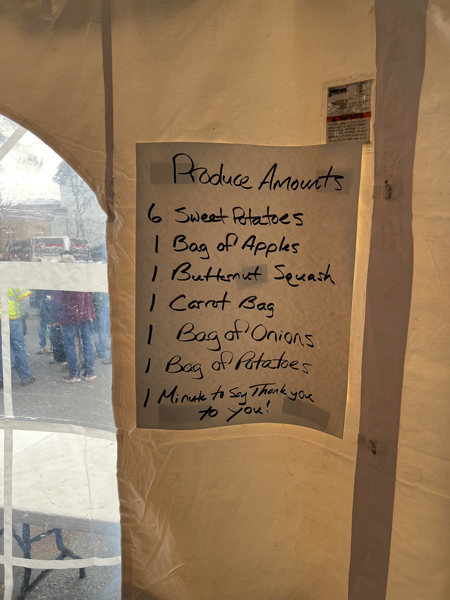 Produce Amounts
6 Sweet Potatoes
1 Bag of Apples
1 Butternut Squash
1 Carrot Bag
1 Bag of Onions
1 Bag of Potatoes
1 Minute to Say Thank you
to you!